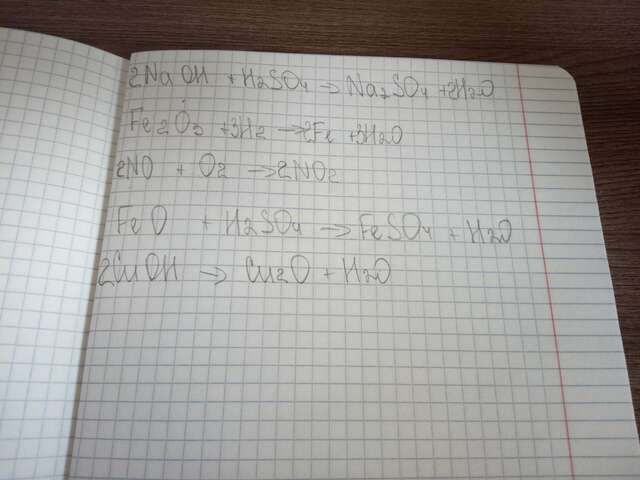 2NaOH + H2SO4 → Na2SO4 + 2H2O
Fe2O3 + 3H2 → 2Fe + 3H2O
2NO + O2 → 2NO2
FeO + H2SO4 → FeSO4 + H2O
2CuOH → Cu2O + H2O